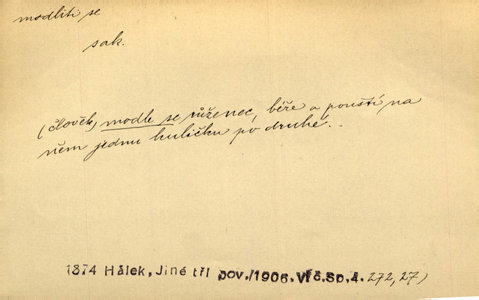 modliti se
sak.
(člověk) modle se růženec, běře a pouští na
něm jednu kuličku po druhé..
1874 Hálek, Jiné tři pov./1906. Vl č. Sp. 4. 272, 27)